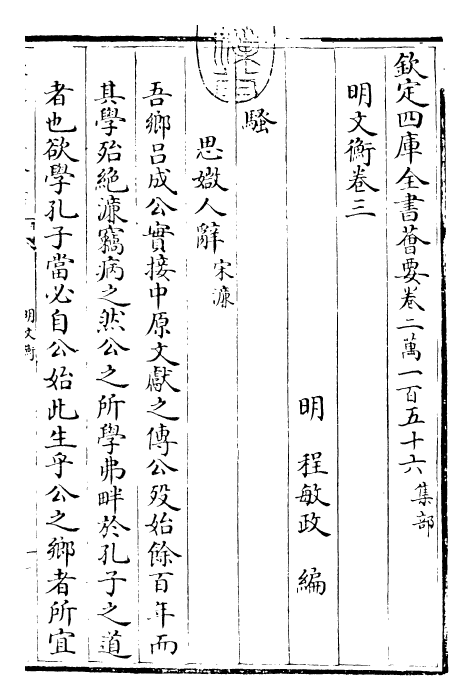 欽定四庫全書薈要卷二萬一百五十六集部
明文衡卷三
明 程敏政 編
騷
思媺人辭宋濂
吾鄉呂成公實接中原文獻之傳公歿始餘百年而
其學殆絶濂竊病之然公之所學弗畔於孔子之道
者也欲學孔子當必自公始此生乎公之鄉者所宜
明文衡